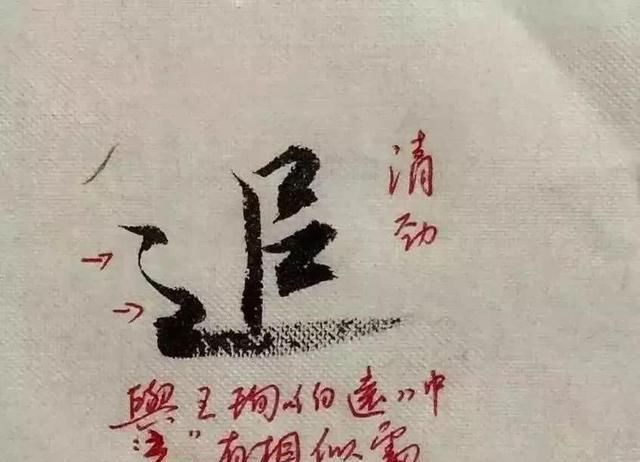 追
清
劲
與王珣《伯遠》中
有相似處